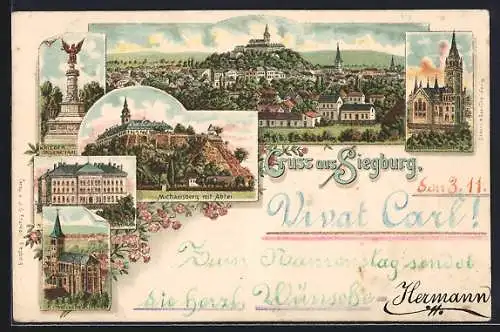 KRIEGER
DENKMAL
Michaelsberg mit Abtei
Gruss aus Siegburg.
Den 3.11.
Vivat Carl!
Zum Namenstag sendet
die herzl. Wünsche
Hermann